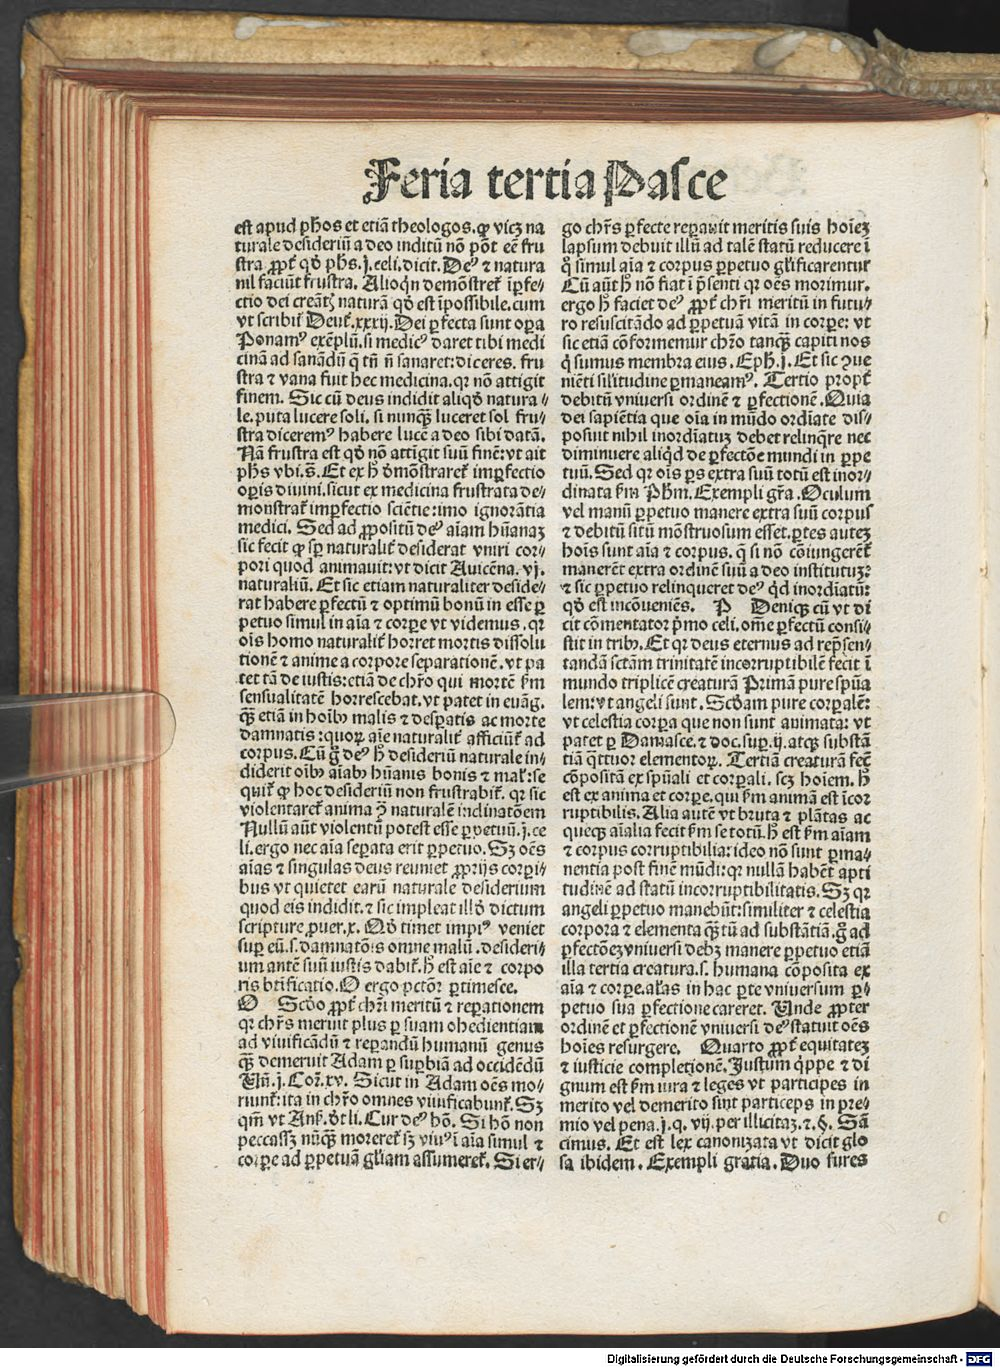 Feria tertia Pasce
est apud ph̄os et etiā theologos. ꝙ vicꝫ na
turale desideriū a deo inditū nō pōt eē fru
stra ꝓpt̄ qḋ ph̄s. j. celi. dicit. Deꝰ ⁊ natura
nil faciūt frustra. Alioqn̄ demōstret̄ īperfe⸗
ctio dei creāt̄ꝫ naturā qḋ est īpossibile. cum
vt scribit̄ Deut̄. xxxij. Dei ꝑfecta sunt oꝑa
Ponamꝰ exēplū. si medicꝰ daret tibi medi
cinā ad sanādū q̄ tn̄ n̄ sanaret: diceres. fru
stra ⁊ vana fuit hec medicina. qꝛ nō attigit
finem. Sic cū deus indidit aliqḋ natura⸗
le. puta lucere soli. si nunqꝫ̄ luceret sol fru⸗
stra diceremꝰ habere lucē a deo sibi datā.
Nā frustra est qḋ nō attigit suū finē: vt ait
ph̄s vbi. s̄. Et ex h̄ ḋmōstraret̄ imꝑfectio
oꝑis diuini. sicut ex medicina frustrata de⸗
monstrat̄ imꝑfectio sciētie: imo ignorātia
medici. Sed ad ꝓpositū deꝰ aīam hūanaꝫ
sic fecit ꝙ sꝑ naturalit̄ desiderat vniri cor⸗
pori quod animauit: vt dicit Auicēna. vj.
naturaliū. Et sic etiam naturaliter deside⸗
rat habere ꝑfectū ⁊ optimū bonū in esse ꝑ
petuo simul in aīa ⁊ corꝑe vt videmus. qꝛ
oīs homo naturalit̄ horret mortis dissolu
tionē ⁊ anime a corpore separationē. vt pa
tet tā de iustis: etiā de chr̄o qui mortē ẜm
sensualitatē horrescebat. vt patet in euāg.
qꝫ̄ etiā in hoībꝫ malis ⁊ desꝑatis ac morte
damnatis: quoꝝ aīe naturalit̄ afficiūt̄ ad
corpus. Cū g̊ deꝰ h̄ desideriū naturale in⸗
diderit oībꝫ aīabꝫ hūanis bonis ⁊ mal̄: se
quit̄ ꝙ hoc desideriū non frustrabit̄. qꝛ sic
violentaret̄ anima ꝯ̄ naturalē inclinatōem
Nullū aūt violentū potest esse ꝑpetuū. j. ce
li. ergo nec aīa seꝑata erit ꝑpetuo. Sꝫ oēs
aīas ⁊ singulas deus reuniet ꝓprijs corꝑi⸗
bus vt quietet earū naturale desiderium
quod eis indidit. ⁊ sic impleat illḋ dictum
scripture ꝓuer. x. Qḋ timet impiꝰ veniet
suꝑ eū. s. damnatōis omne malū. desideri⸗
um autē suū iustis dabit̄. h̄ est aīe ⁊ corpo
ris btīficatio. O ergo pctōr ꝑtimesce.
O Scḋo ꝓpt̄ chr̄i meritū ⁊ reꝑationem
qꝛ chr̄s meruit plus ꝑ suam obedientiam
ad viuificādū ⁊ reꝑandū humanū genus
qꝫ̄ demeruit Adam ꝑ suꝑbiā ad occidēdū
Vn̄. j. Cor̄. xv. Sicut in Adam oēs mo⸗
riunt̄: ita in chr̄o omnes viuificabunt̄. Sꝫ
qm̄ vt Ans̄. ḋt li. Cur deꝰ hō. Si hō non
peccassꝫ nūqꝫ̄ moreret̄ sꝫ viuꝰ ī aīa simul ⁊
corꝑe ad ꝑpetuā gl̄iam assumeret̄. Si er⸗
go chr̄s ꝑfecte reꝑauit meritis suis hoīeꝫ
lapsum debuit illū ad talē statū reducere ī
q̊ simul aīa ⁊ corpus ꝑpetuo gl̄ificarentur
Cū aūt h̄ nō fiat ī p̄senti qꝛ oēs morimur.
ergo h̄ faciet deꝰ ꝓpt̄ chr̄i meritū in futu⸗
ro resuscitādo ad ꝑpetuā vitā in corꝑe: vt
sic etiā cōformemur chr̄o tanqꝫ̄ capiti nos
q̄ sumus membra eius. Eph. j. Et sic ꝯue
niēti sil̄itudine ꝑmaneamꝰ. Tertio propt̄
debitū vniuersi ordinē ⁊ ꝑfectionē. Quia
dei sapiētia que oīa in mūdo ordīate dis⸗
posuit nihil inordīatuꝫ debet relinq̄re nec
diminuere aliq̇d de ꝑfectōe mundi in ꝑpe
tuū. Sed qꝛ oīs ꝑs extra suū totū est inor⸗
dinata ẜm Ph̄m. Exempli gr̄a. Oculum
vel manū ꝑpetuo manere extra suū corpus
⁊ debitū sitū mōstruosum esset. ꝑtes auteꝫ
hoīs sunt aīa ⁊ corpus. q̄ si nō cōiungerēt̄
manerēt extra ordinē suū a deo institutuꝫ:
⁊ sic ꝑpetuo relinqueret deꝰ q̇d inordīatū:
qḋ est incōueniēs. P Deniqꝫ cū vt di
cit cōmentator p̄mo celi. om̄e ꝑfectū consi⸗
stit in tribꝫ. Et qꝛ deus eternus ad rep̄sen⸗
tandā sctām trinitatē incorruptibilē fecit ī
mundo triplicē creaturā Primā pure spūa
lem: vt angeli sunt. Scḋam pure corꝑalē:
vt celestia corꝑa que non sunt animata: vt
patet ꝑ Damasce. ⁊ doc. suꝑ. ij. atqꝫ substā
tiā q̄ttuor elementoꝝ. Tertiā creaturā fec̄
cōpositā ex spūali et corꝑali. scꝫ hoīem. h̄
est ex anima et corꝑe. qui ẜm animā est īcor
ruptibilis. Alia autē vt bruta ⁊ plātas ac
quecqꝫ aīalia fecit ẜm se totū. h̄ est ẜm aīam
⁊ corpus corruptibilia: ideo nō sunt ꝑma⸗
nentia post finē mūdi: qꝛ nullā habēt apti
tudinē ad statū incorruptibilitatis. Sꝫ qꝛ
angeli ꝑpetuo manebūt: similiter ⁊ celestia
corpora ⁊ elementa qꝫ̄tū ad substātiā. g̊ ad
ꝑfectōeꝫ vniuersi debꝫ manere ꝑpetuo etiā
illa tertia creatura. s. humana cōposita ex
aīa ⁊ corꝑe. al̄as in hac ꝑte vniuersum ꝑ⸗
petuo sua ꝑfectione careret. Unde ꝓpter
ordinē et ꝑfectionē vniuersi deꝰ statuit oēs
hoīes resurgere. Quarto ꝓpt̄ equitateꝫ
⁊ iusticie completionē. Justum q̇ppe ⁊ di
gnum est ẜm iura ⁊ leges vt participes in
merito vel demerito sint particeps in pre⸗
mio vel pena. j. q. vij. per illicitaꝫ. ⁊. §. Sā
cimus. Et est lex canonizata vt dicit glo
sa ibidem. Exempli gratia. Duo fures
Digitalisierung gefördert durch die Deutsche Forschungsgemeinschaft - DFG